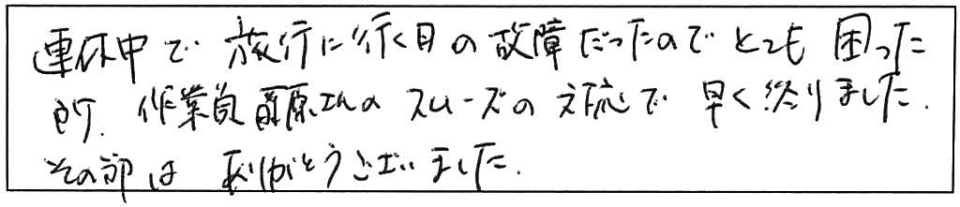 連休中で 旅行に行く日の故障だったのでとても困った
所、作業員 原さんのスムーズの対応で早く終りました.
その節は ありがとうございました.